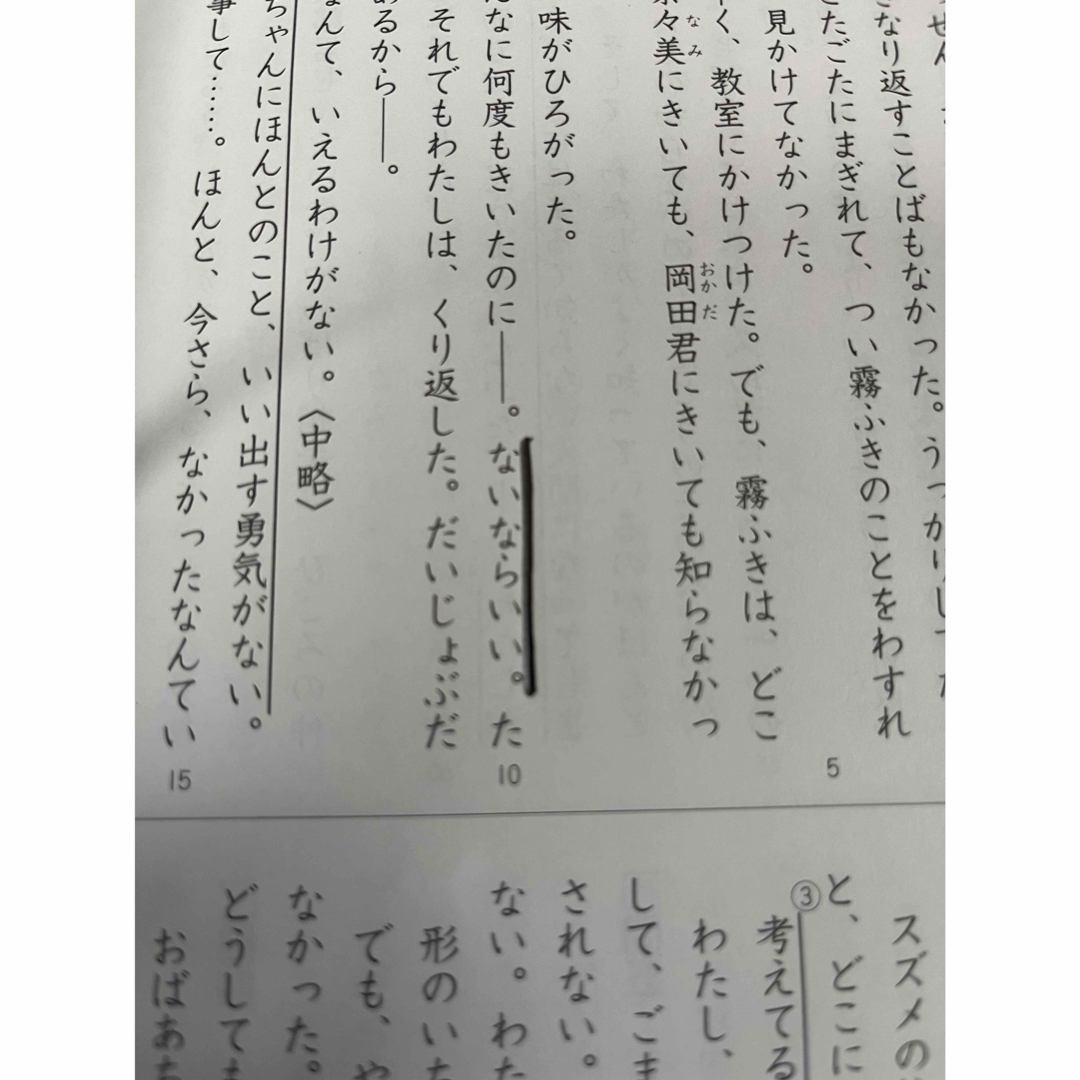 きなり返すことばもなかった。うっかりして
たごたにまぎれて、つい霧ふきのことをわすれ
見かけてなかった。
く、教室にかけつけた。でも、霧ふきは、どこ
々美にきいても、岡田君にきいても知らなかっ
なみ
おかだ
味がひろがった。
なに何度もきいたのに――。ないならいい。た
それでもわたしは、くり返した。だいじょぶだ
あるから――。
なんて、いえるわけがない。〈中略〉
ちゃんにほんとのこと、いい出す勇気がない。
事して……。ほんと、今さら、なかったなんてい
5
10
15
スズメの
と、どこに
③考えてる
わたし、
して、ごま
されない。
ない。わた
形のいち
でも、や
なかった。
どうしても
おばあち